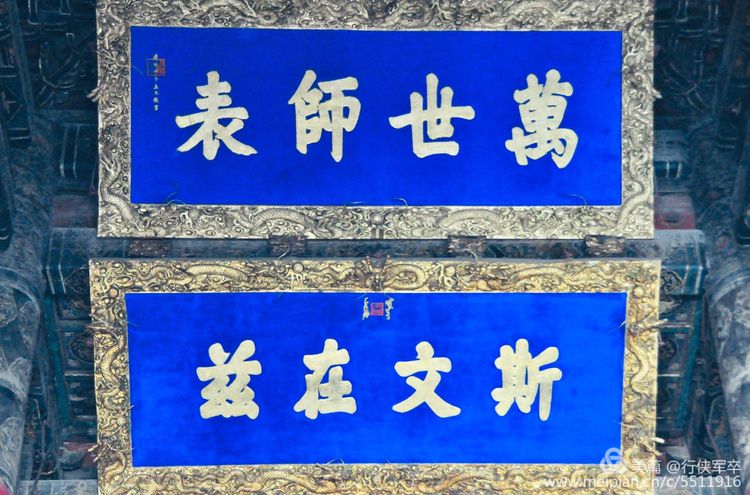 萬世師表
斯文在兹
美篇 @行侠军卒
www.meipian.cn/c/5511916